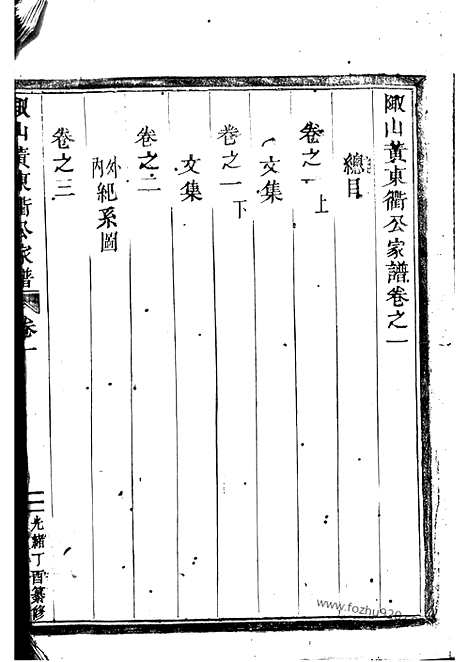 陬山黃東衢公家譜卷之一
總目
卷之一上
文集
卷之一下
文集
卷之二
外內紀系圖
卷之三
陬山黃東衢公家譜
卷一
光緒丁酉纂修
www.fozhu920